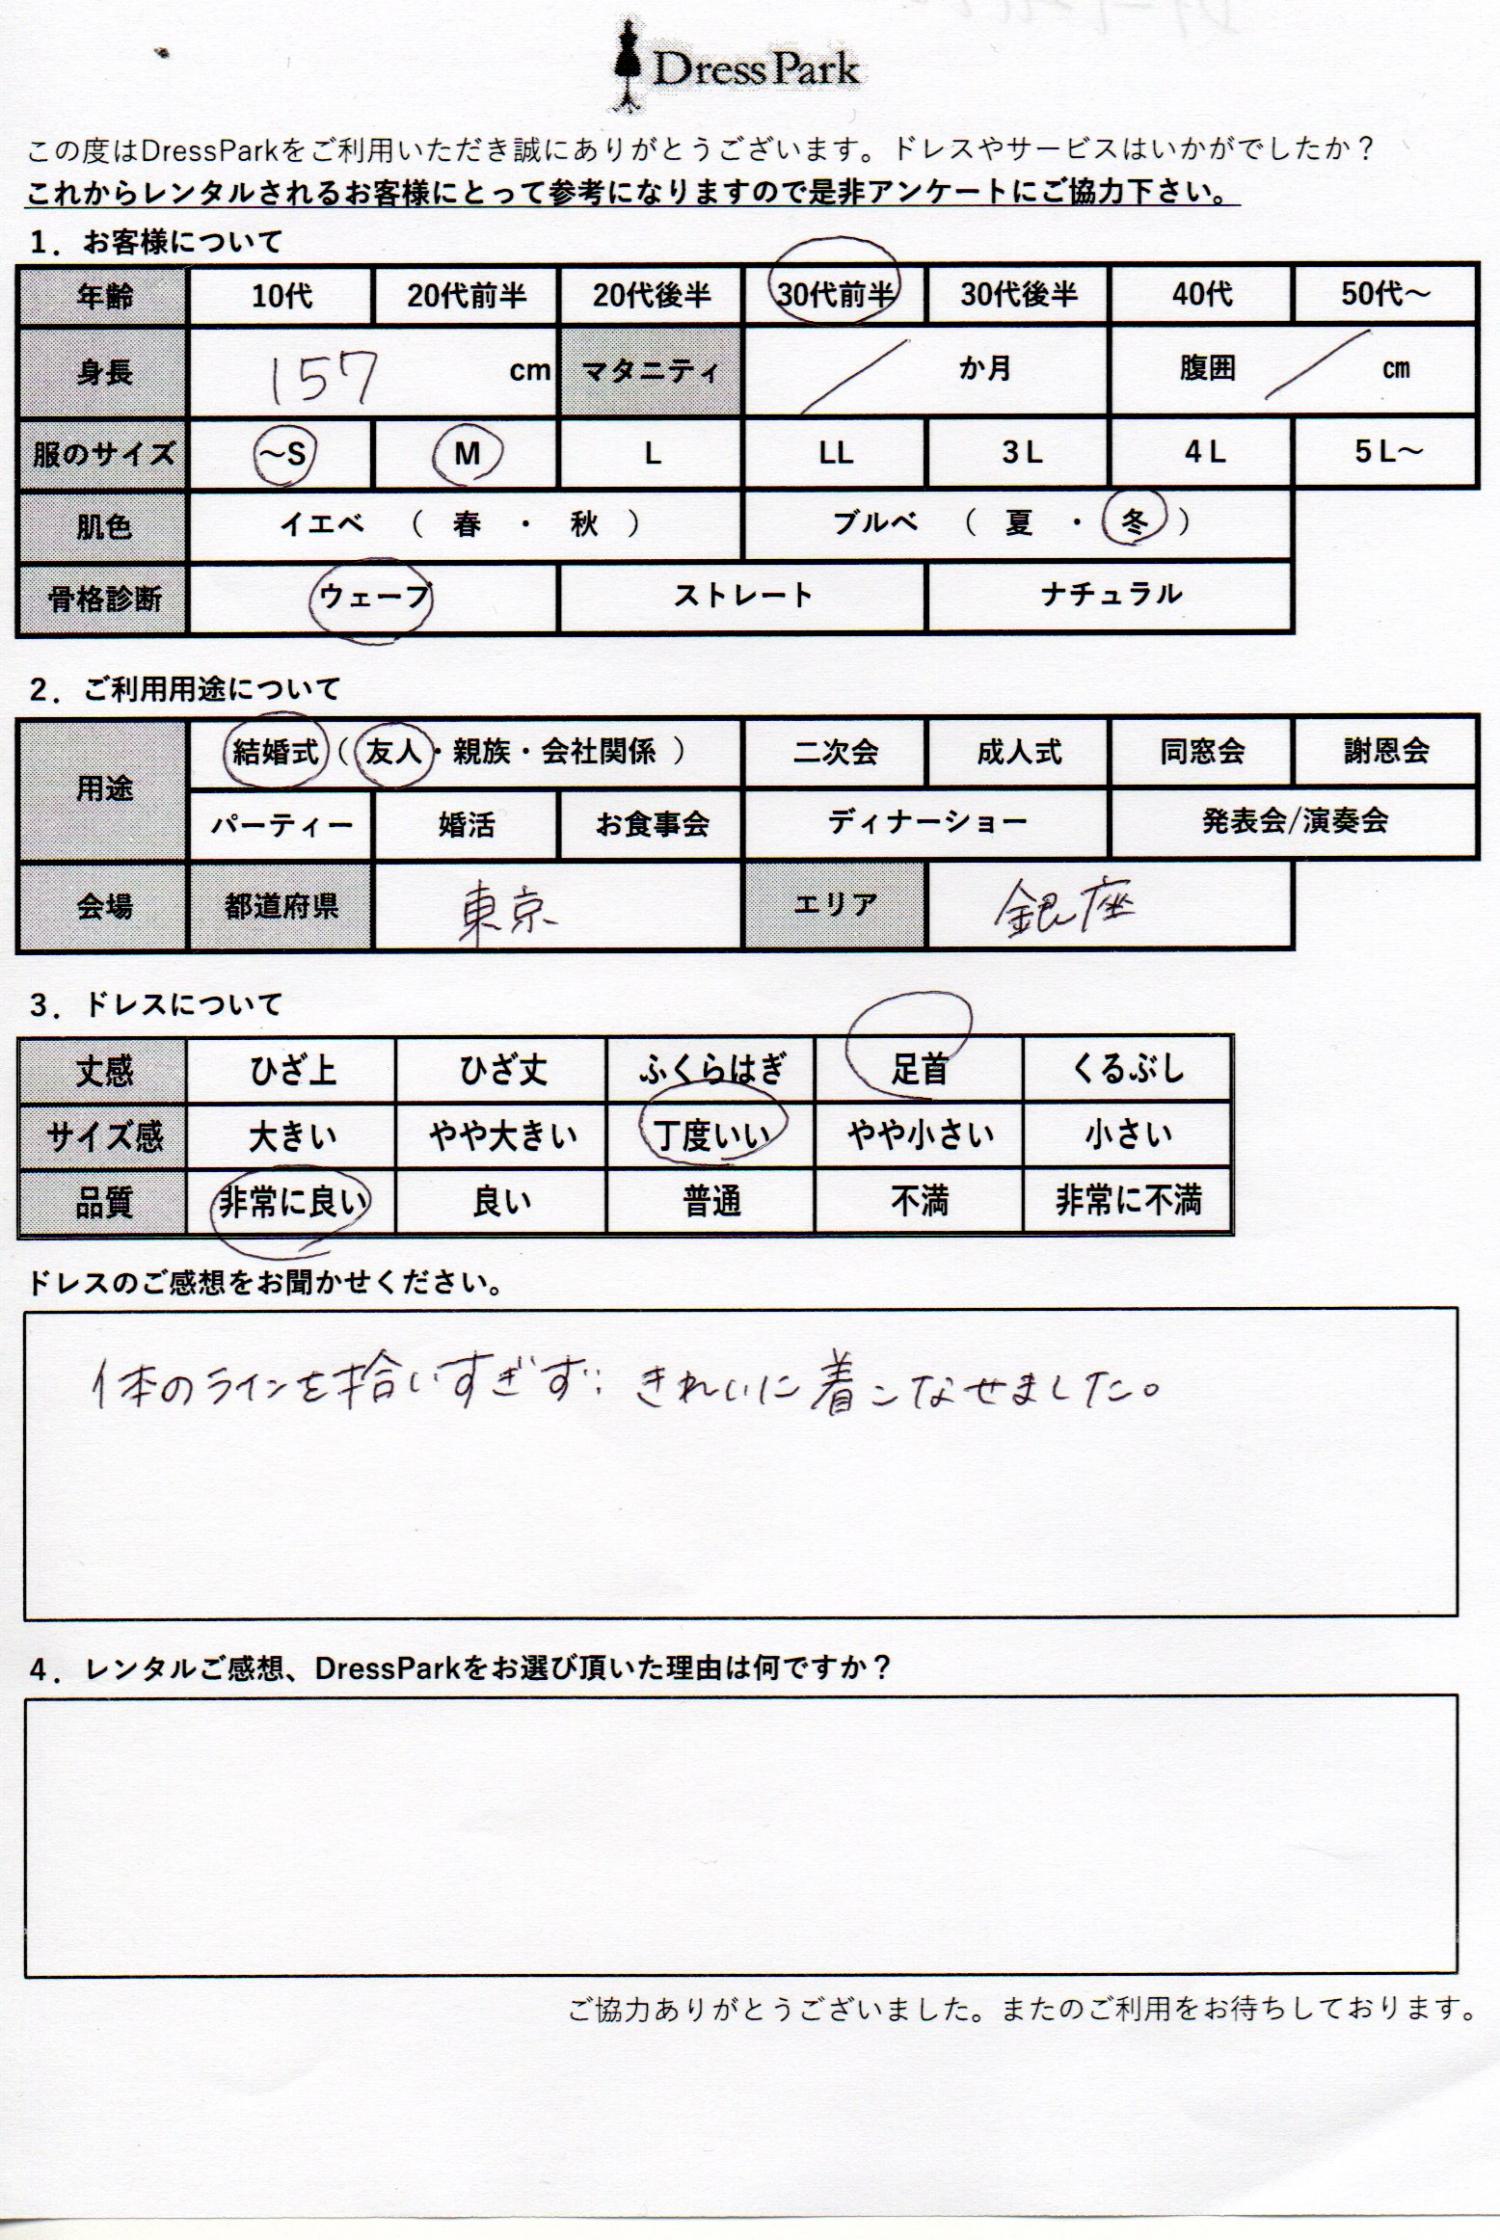 Dress Park
この度はDressParkをご利用いただき誠にありがとうございます。ドレスやサービスはいかがでしたか？
これからレンタルされるお客様にとって参考になりますので是非アンケートにご協力下さい。
1．お客様について
年齢 10代 20代前半 20代後半 30代前半 30代後半 40代 50代～
身長 157 cm マタニティ ／ か月 腹囲 ／ ㎝
服のサイズ ～S M L LL 3L 4L 5L～
肌色 イエベ （ 春 ・ 秋 ） ブルベ （ 夏 ・ 冬 ）
骨格診断 ウェーブ ストレート ナチュラル
2．ご利用用途について
用途 結婚式（友人・親族・会社関係 ） 二次会 成人式 同窓会 謝恩会
パーティー 婚活 お食事会 ディナーショー 発表会/演奏会
会場 都道府県 東京 エリア 銀座
3．ドレスについて
丈感 ひざ上 ひざ丈 ふくらはぎ 足首 くるぶし
サイズ感 大きい やや大きい 丁度いい やや小さい 小さい
品質 非常に良い 良い 普通 不満 非常に不満
ドレスのご感想をお聞かせください。
体のラインを拾いすぎず、きれいに着こなせました。
4．レンタルご感想、DressParkをお選び頂いた理由は何ですか？
ご協力ありがとうございました。またのご利用をお待ちしております。